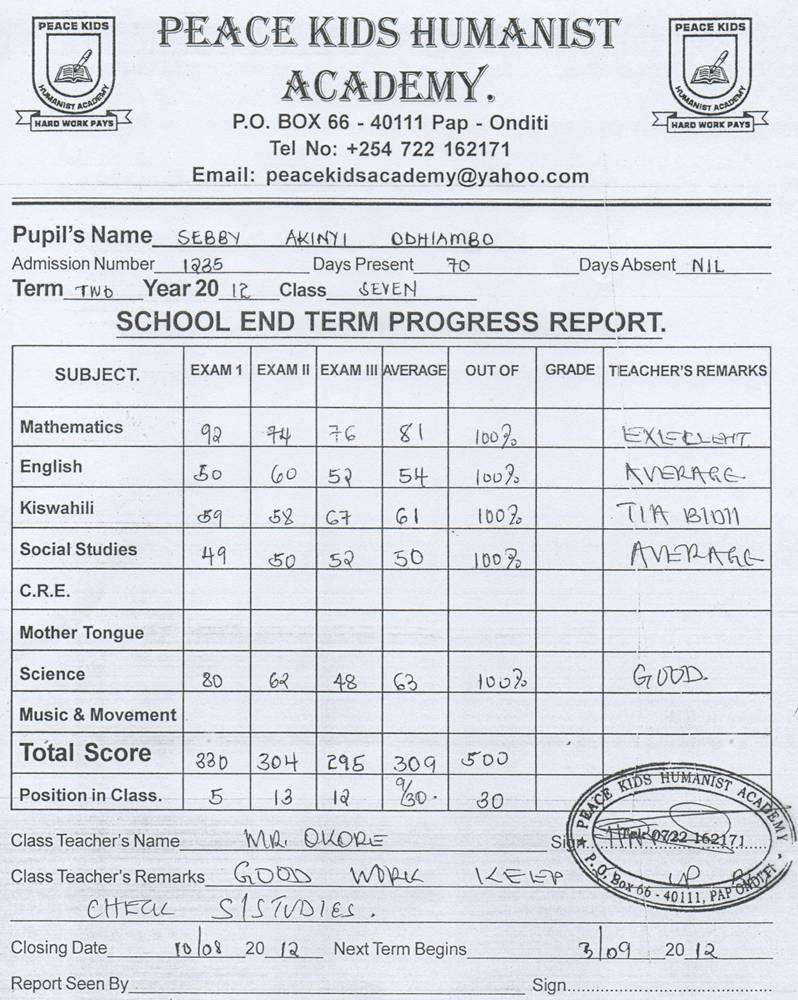 PEACE KIDS
HUMANIST ACADEMY
HARD WORK PAYS
PEACE KIDS HUMANIST
ACADEMY.
PEACE KIDS
HUMANIST ACADEMY
HARD WORK PAYS
P.O. BOX 66 - 40111 Pap - Onditi
Tel No: +254 722 162171
Email: peacekidsacademy@yahoo.com
Pupil's Name SEBBY AKINYI ODHIAMBO
Admission Number 1235 Days Present 70 Days Absent NIL
Term TWO Year 20 12 Class SEVEN
SCHOOL END TERM PROGRESS REPORT.
SUBJECT. EXAM 1 EXAM II EXAM III AVERAGE OUT OF GRADE TEACHER'S REMARKS
Mathematics 92 74 76 81 100% EXLELLENT
English 50 60 52 54 100% AVERAGE
Kiswahili 59 58 67 61 100% TIA BIDII
Social Studies 49 50 52 50 100% AVERAGE
C.R.E.
Mother Tongue
Science 80 62 48 63 100% GOOD.
Music & Movement
Total Score 330 304 295 309 500
Position in Class. 5 13 12 9/30. 30
Class Teacher's Name MR. OKORE Sign
PEACE KIDS HUMANIST ACADEMY
Tel: 0722 162171
P.O. Box 66 - 40111, PAP ONDITI.
Class Teacher's Remarks GOOD WORK KEEP UP
CHECK S/STUDIES.
Closing Date 10/08 20 12 Next Term Begins 3/09 20 12
Report Seen By Sign